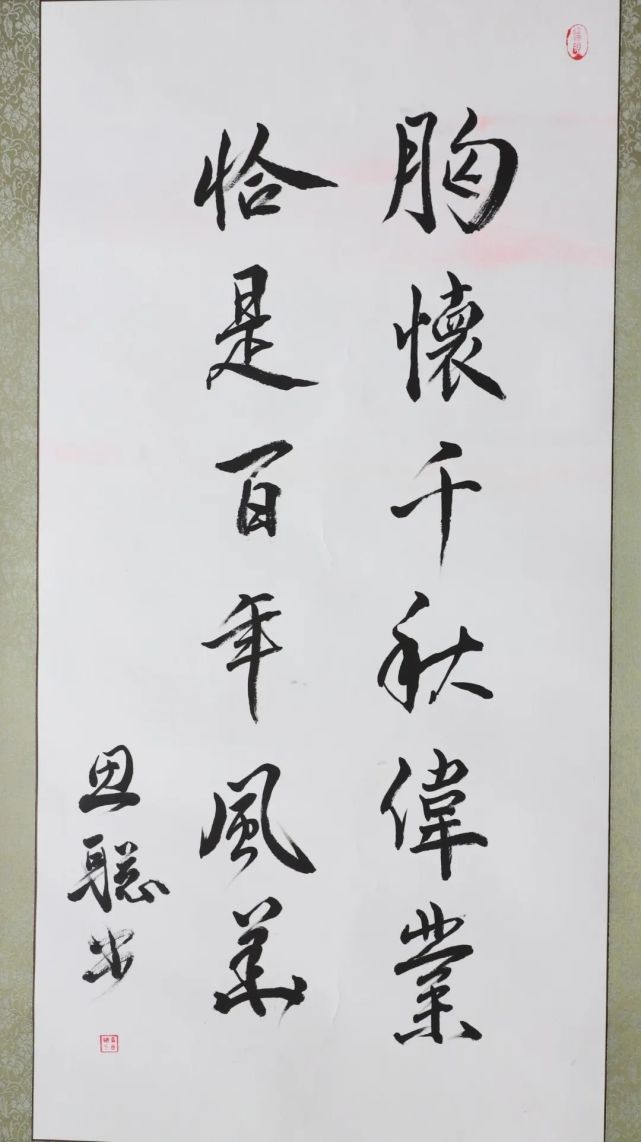 胸懷千秋偉業
恰是百年風華
恩聪书